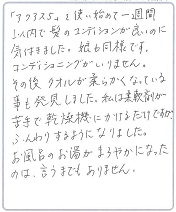 「アクアス5」を使い始めて一週間
以内で髪のコンディションが良いのに
気付きました。娘も同様です。
コンディショニングがいりません。
その後タオルが柔らかくなっている
事も発見しました。私は柔軟剤が
苦手で乾燥機にかけるだけですが、
ふんわりするようになりました。
お風呂のお湯がまろやかになった
のは、言うまでもありません。